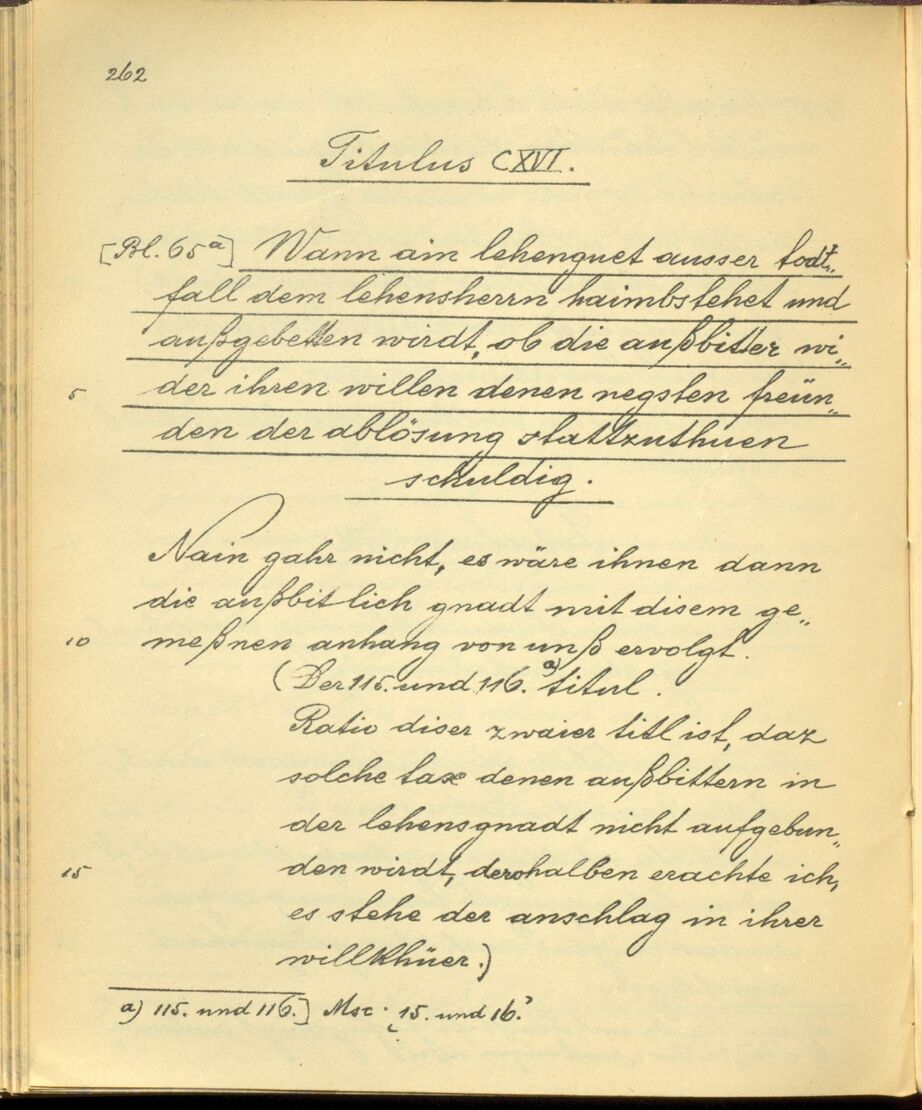 262
Titulus CXVI.
[Bl. 65a] Wann ain lehenguet ausser todt„
fall dem lehensherrn haimbstehet und
außgebetten wirdt, ob die außbitter wi„
5 der ihren willen denen negsten freün„
den der ablösung stattzuthuen
schuldig.
Nain gahr nicht, es wäre ihnen dann
die außbitlich gnadt mit disem ge„
10 meßnen anhang von unß ervolgt.
(Der 115. und 116. a) titul.
Ratio diser zwaier titl ist, daz
solche taxe denen außbittern in
der lehensgnadt nicht aufgebun„
15 den wirdt, derohalben erachte ich,
es stehe der anschlag in ihrer
willkhüer.)
a) 115. und 116.] Msc. 15. und 16.